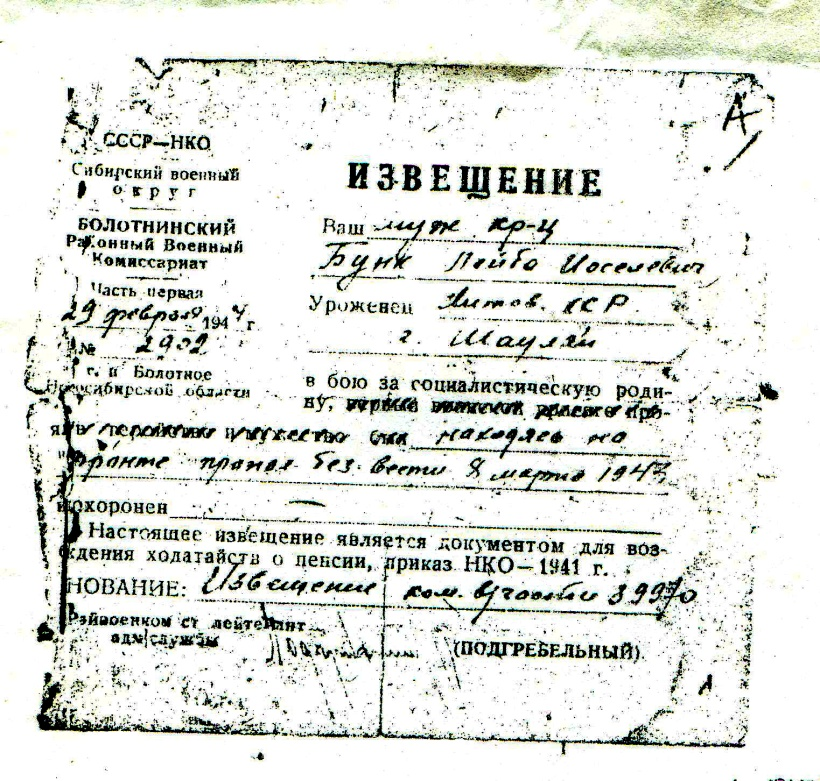 СССР—НКО
Сибирский военный
округ
БОЛОТНИНСКИЙ
Районный Военный
Комиссариат
Часть первая
29 февраля 1944 г.
№ 2902
г. п Болотное
Новосибирской области
А
ИЗВЕЩЕНИЕ
Ваш муж кр-ц
Бунк Лейба Иоселевич
Уроженец Литов. ССР
г. Шауляй
в бою за социалистическую роди-
ну, верный воинской присяге про-
явив героизм и мужество находясь на
фронте пропал без вести 8 марта 1943
похоронен —
Настоящее извещение является документом для воз-
буждения ходатайств о пенсии, приказ НКО—1941 г.
НОВАНИЕ: Извещение 39970
Райвоенком ст лейтенант
адм/службы
(ПОДГРЕБЕЛЬНЫЙ)